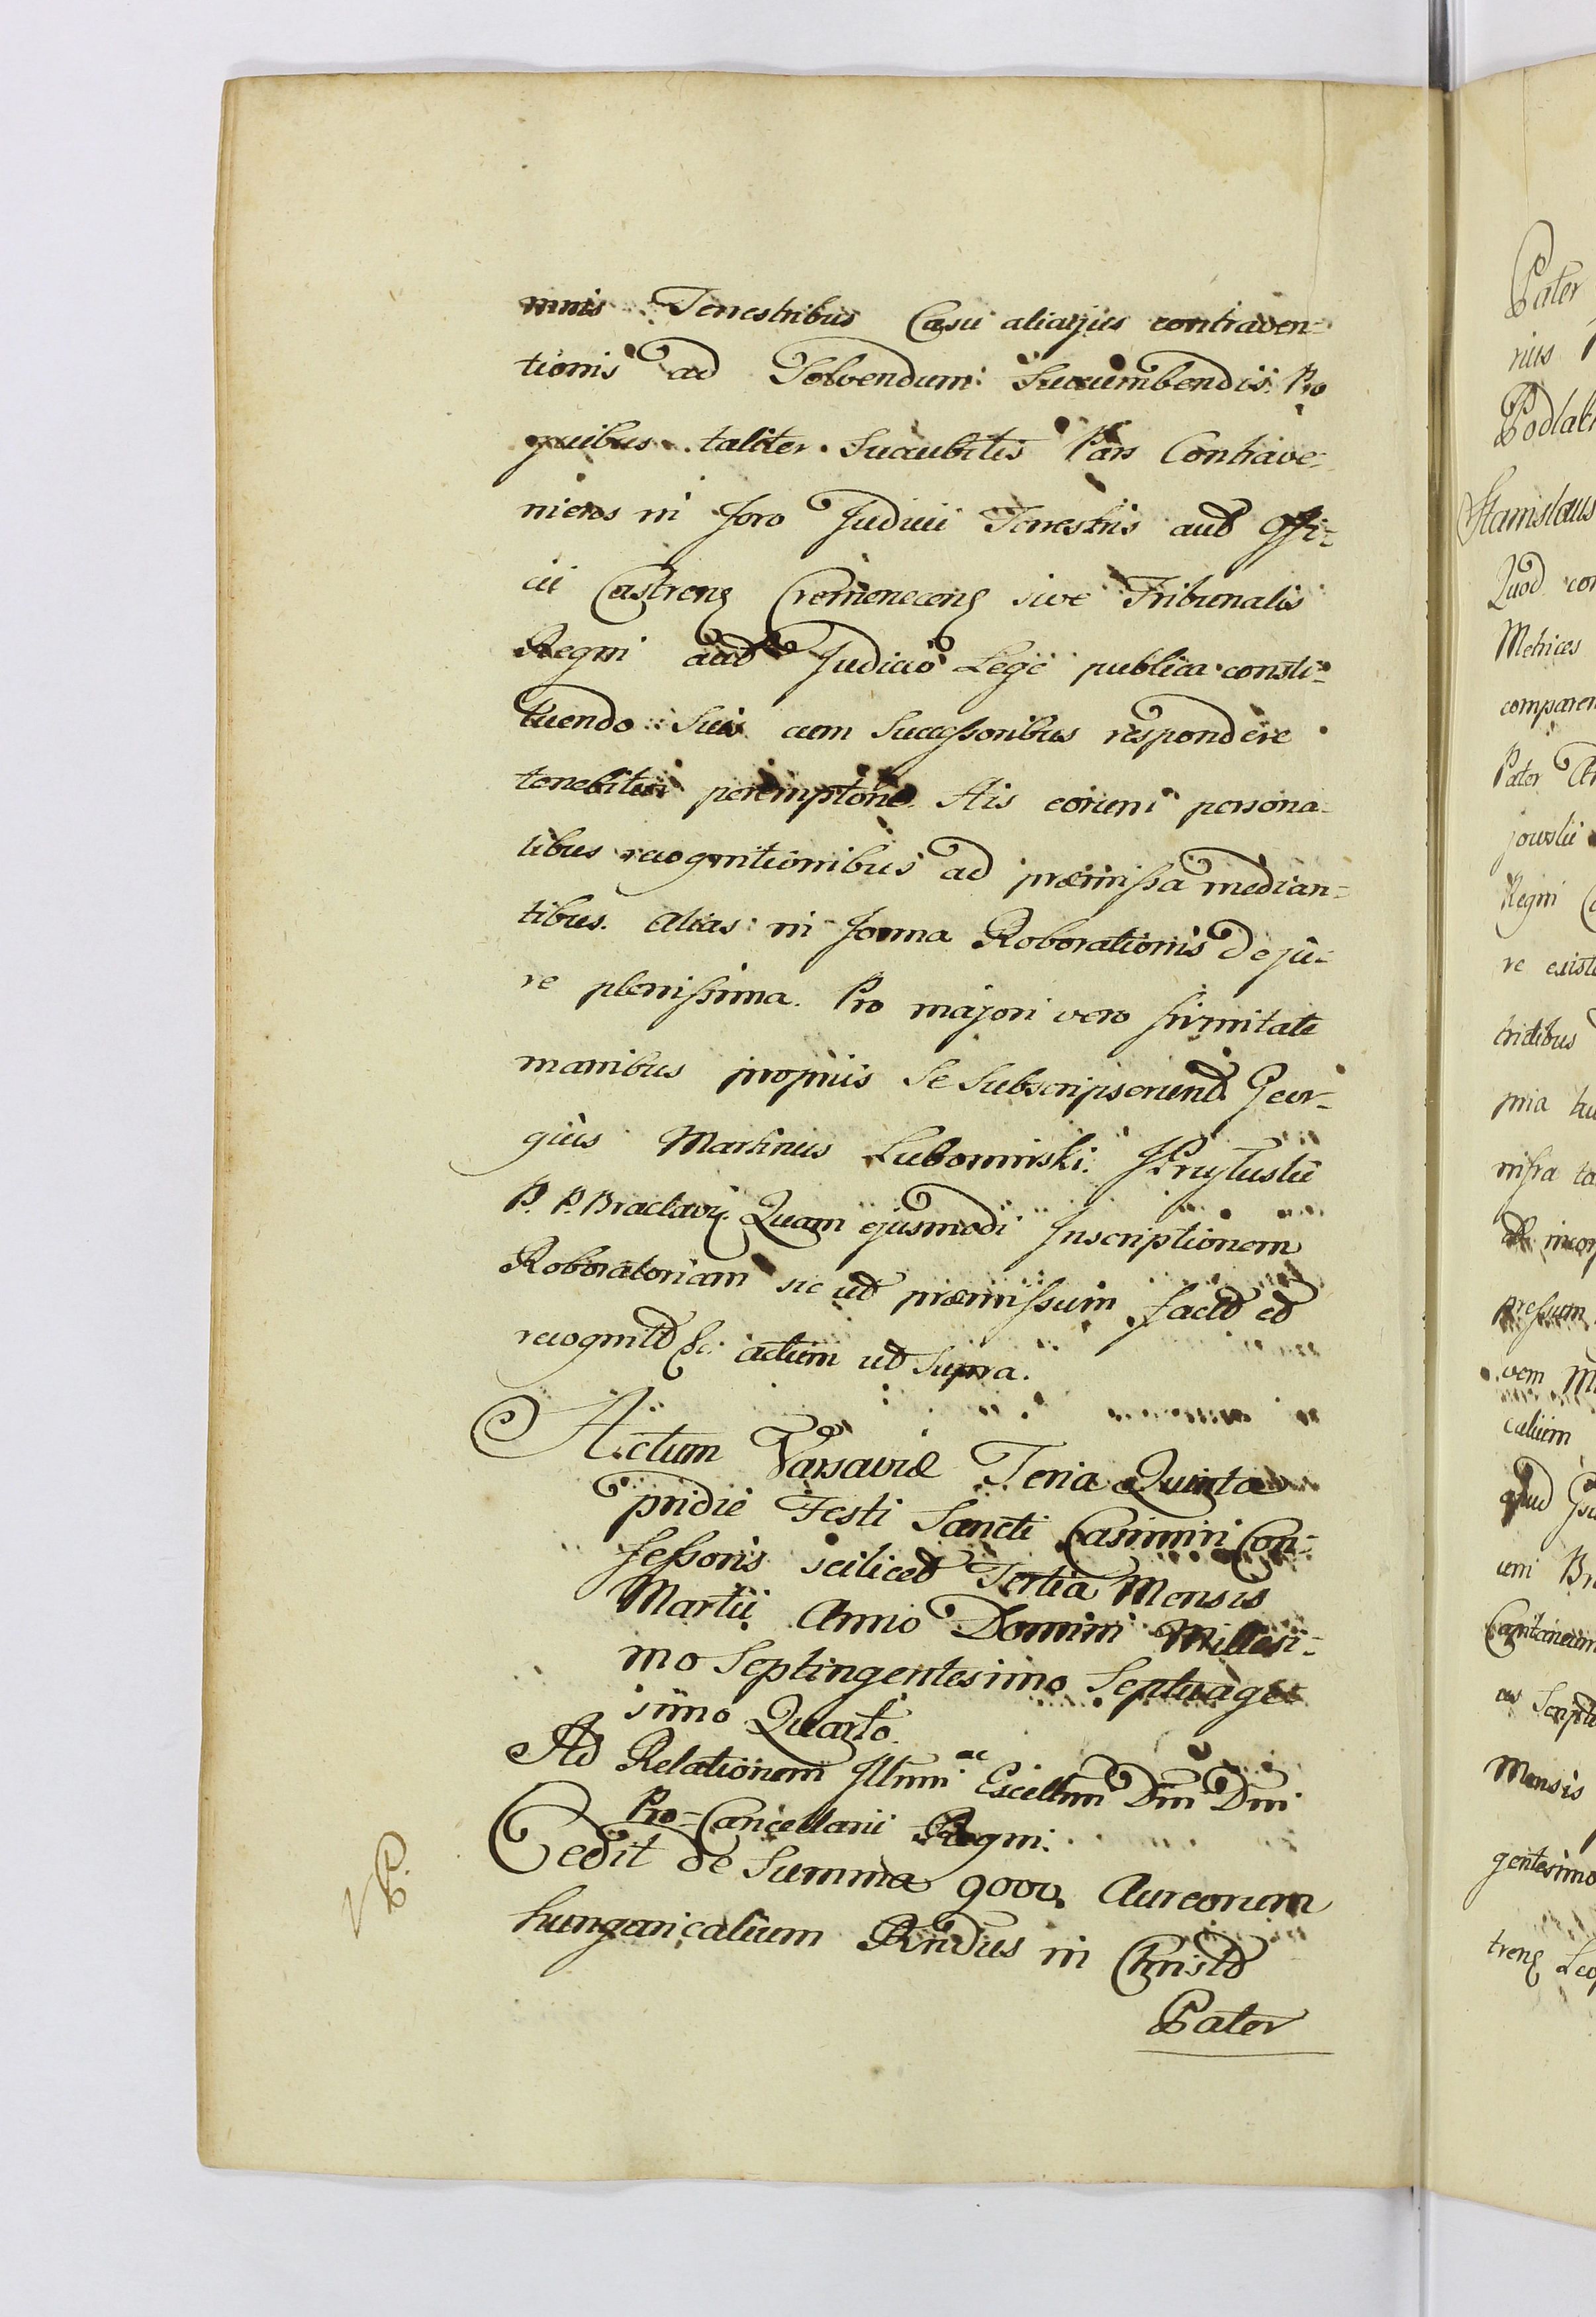 mnis Terrestribus Casu alicujus contraven-
tionis ad Solvendum Succumbendis. Pro
quibus taliter Succubitis Pars Contrave-
niens in Foro Judicii Terrestris aut Offi-
cii Castrens Cremenecens sive Tribunalis
Regni aut Judicio Lege publica consti-
tuendo Suis cum Successoribus respondere
tenebitur peremptorie. His eorum persona-
libus recognitionibus ad præmissa median-
tibus. Alias in Forma Roborationis de ju-
re plenissima. Pro majori vero firmitate
manibus propriis Se Subscripserunt. Geor-
gius Martinus Lubomirski.
P. P. Braclavs. Quam ejusmodi Inscriptionem
Roboratoriam sic ut præmissum fact et
recognit &c. actum ut Supra.
Actum Varsaviæ Feria Quinta
pridie Festi Sancti Casimiri Con-
fessoris scilicet Tertia Mensis
Martii Anno Domini Millesi-
mo Septingentesimo Septuage-
simo Quarto.
Ad Relationem Illmi ac Excellmi Dni Dni
Pro-Cancellarii Regni.
Cedit de Summa 9000. Aureorum
hungaricalium Rndus in Christo
Pater
Pater
rius
Podlah
Stanislaus
Quod con
Metrices
comparen
Pater
jowslii
Regni
re existe
tridibus
pria
infra ta
incor
pressum
vem M
calium
Capitaneum
Script
Mensis
gentesimo
trens Leop